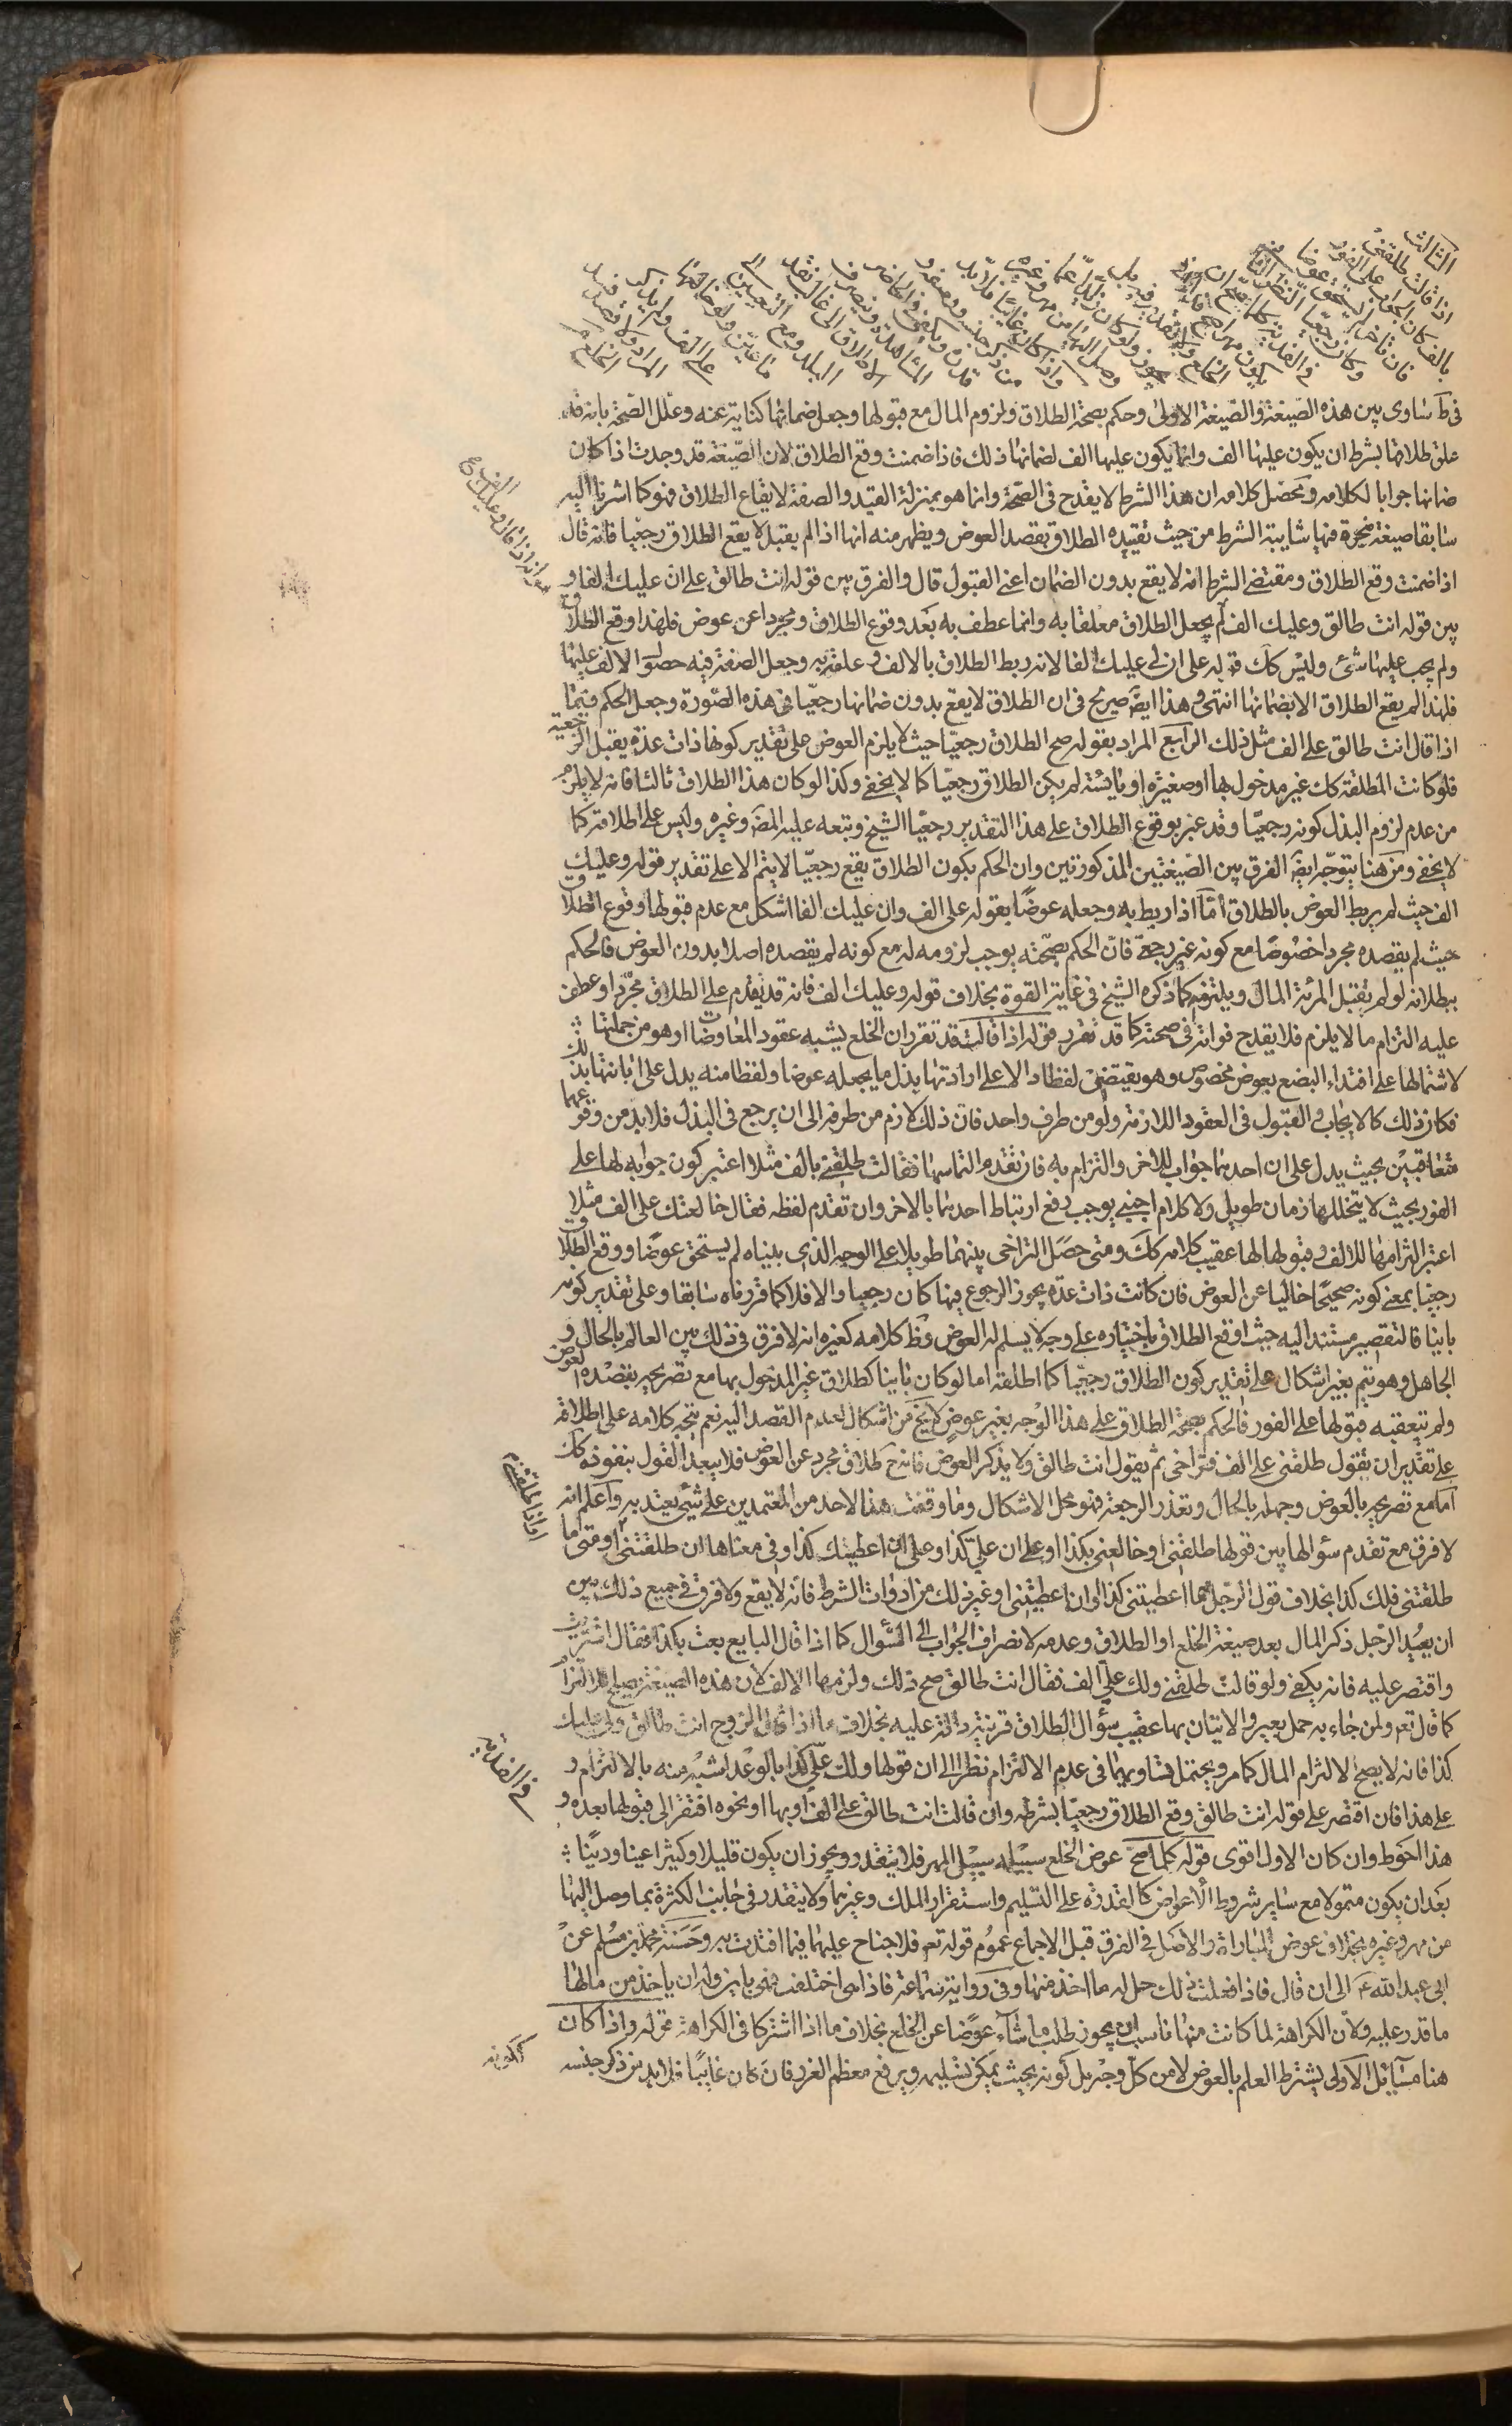 الثالث
اذا قالت طلقني
بالف كان الجواب على الفور
فان تاخر لم يستحق عوضا
وكان رجعيا النظر الثاني
في الفدية كلما صح ان
يكون مهرا صح فداء في
الخلع ولا تقدير فيه بل
يجوز ولو كان زايدا عما
وصل اليها من مهر وغيره
واذا كان غايبا فلا بد
من ذكر جنسه ووصفه و
قدره ويكفي في الحاضر
المشاهدة وينصرف
الاطلاق الى غالب نقد
البلد ومع التعيين الى
ما عين ولو خالعها
على الف ولم يذكر
المراد ولا قصد فسد
الخلع
في ط ساوى بين هذه الصيغة والصيغة الاولى وحكم بصحة الطلاق ولزوم المال مع قبولها وجعل ضمانها كناية عنه وعلل الصحة بانه قد
علق طلاقها بشرط ان يكون عليها الف وانما يكون عليها الف لضمانها ذلك فاذا ضمنت وقع الطلاق لان الصيغة قد وجدت اذا كان
ضمانها جوابا لكلامه ومحصل كلامه ان هذا الشرط لا يقدح في الصحة وانما هو بمنزلة القيد والصفة لايقاع الطلاق فهو كما اشرنا اليه
سابقا صيغة منجزة فيها شايبة الشرط من حيث تقييده الطلاق بقصد العوض ويظهر منه انها اذا لم يقبل لا يقع الطلاق رجعيا فانه قال
اذا ضمنت وقع الطلاق ومقتضى الشرط انه لا يقع بدون الضمان اعني القبول قال والفرق بين قوله انت طالق على ان عليك الفا و
بين قوله انت طالق وعليك الف لم يجعل الطلاق معلقا به وانما عطف به بعد وقوع الطلاق ومجردا عن عوض فلهذا وقع الطلاق
ولم يجب عليها شئ وليس كك قوله على ان لي عليك الفا لانه ربط الطلاق بالالف وعلقه به وجعل الصفة فيه حصول الالف عليها
فلهذا لم يقع الطلاق الا بضمانها انتهى وهذا ايضا صريح في ان الطلاق لا يقع بدون ضمانها رجعيا في هذه الصورة وجعل الحكم فيما
اذا قال انت طالق على الف مثل ذلك الرابع المراد بقوله صح الطلاق رجعيا حيث لا يلزم العوض على تقدير كونها ذات عدة يقبل الرجعية
فلو كانت المطلقة كك غير مدخول بها او صغيرة او يائسة لم يكن الطلاق رجعيا كما لا يخفى وكذا لو كان هذا الطلاق ثالثا فانه لا يلزم
من عدم لزوم البذل كونه رجعيا وقد عبر بوقوع الطلاق على هذا التقدير رجعيا الشيخ وتبعه عليه المصَ وغيره وليس على اطلاقه كما
لا يخفى ومن هنا يتوجه ايضَ الفرق بين الصيغتين المذكورتين وان الحكم بكون الطلاق يقع رجعيا لا يتم الا على تقدير قوله وعليك
الف حيث لم يربط العوض بالطلاق امّا اذا ربط به وجعله عوضًا بقوله على الف وان عليك الفا اشكل مع عدم قبولها وقوع الطلاق
حيث لم يقصده مجردا خصوصًا مع كونه غير رجعي فان الحكم بصحته يوجب لزومه له مع كونه لم يقصده اصلا بدون العوض فالحكم
ببطلانه لو لم يقبل المرئة المال ويلتزمه كما ذكره الشيخ في غاية القوة بخلاف قوله وعليك الف فانه قد تقدم على الطلاق مجردا وعطف
عليه التزام ما لا يلزم فلا يقدح فواته في صحته كما قد تقرر قوله اذا قالت قد تقرر ان الخلع يشبه عقود المعاوضات او هو من جملتها
لاشتمالها على افتداء البضع بعوض مخصوص وهو يقتضي لفظا دالا على ارادتها بذل ما يجعله عوضا ولفظا منه يدل على ابانتها بذلك
فكان ذلك كالايجاب والقبول في العقود اللازمة ولو من طرف واحد فان ذلك لازم من طرفه الى ان يرجع في البذل فلا بد من وقوعهما
متعاقبين بحيث يدل على ان احدهما جواب للاخر والتزام به فان تقدم التماسها فقالت طلقني بالف مثلا اعتبر كون جوابه لها على
الفور بحيث لا يتخللها زمان طويل ولا كلام اجنبي يوجب رفع ارتباط احدهما بالاخر وان تقدم لفظه فقال خالعتك على الف مثلا
اعتبر التزامها للالف وقبولها لها عقيب كلامه كك ومتى حصل التراخي بينهما طويلا على الوجه الذي بيناه لم يستحق عوضًا ووقع الطلاق
رجعيا بمعنى كونه صحيحًا خاليا عن العوض فان كانت ذات عدة يجوز الرجوع فيها كان رجعيا والا فلا كما قررناه سابقا وعلى تقدير كونه
باينا فالتقصير مستند اليه حيث اوقع الطلاق باختياره على وجه لا يسلم له العوض وظ كلامه كغيره انه لا فرق في ذلك بين العالم بالحال و
الجاهل وهو يتم بغير اشكال على تقدير كون الطلاق رجعيا كما اطلقه اما لو كان باينا كطلاق غير المدخول بها مع تصريحه بقصده العوض
ولم يتعقبه قبولها على الفور فالحكم بصحة الطلاق على هذا الوجه بغير عوض لا يخ من اشكال لعدم القصد اليه نعم يتجه كلامه على اطلاقه
على تقدير ان يقول طلقني على الف فتراخى ثم يقول انت طالق ولا يذكر العوض فانه ح طلاق مجرد عن العوض فلا يبعد القول بنفوذه كك
اما مع تصريحه بالعوض وجهله بالحال وتعذر الرجعة فهو محل الاشكال وما وقفت هنا لاحد من المعتمدين على شئ يعتد به واعلم انه
لا فرق مع تقدم سؤالها بين قولها طلقني او خالعني بكذا او على ان عليّ كذا او على ان اعطيتك كذا او في معناها ان طلقتني او متى ما
طلقتني فلك كذا بخلاف قول الرجل مهما اعطيتني كذا او ان اعطيتني او غير ذلك من ادوات الشرط فانه لا يقع ولا فرق في جميع ذلك بين
ان يعيد الرجل ذكر المال بعد صيغة الخلع او الطلاق وعدمه لانصراف الجواب الى السؤال كما اذا قال البايع بعت بكذا فقال اشتريت
واقتصر عليه فانه يكفي ولو قالت طلقني ولك عليّ الف فقال انت طالق صح ذلك ولزمها الالف لان هذه الصيغة يصلح للالتزام
كما قال تعَ ولمن جاء به حمل بعير والاتيان بها عقيب سؤال الطلاق قرينة دالة عليه بخلاف ما اذا قال الزوج انت طالق ولي عليك
كذا فانه لا يصح لالتزام المال كما مر ويحتمل تساويهما في عدم الالتزام نظرا الى ان قولها ولك عليّ كذا بالوعد اشبه منه بالالتزام و
على هذا فان اقتصر على قوله انت طالق وقع الطلاق رجعيا بشرطه وان قالت انت طالق على الف او بها او نحوه افتقر الى قبولها بعده و
هذا احوط وان كان الاول اقوى قوله كلما صح عوض الخلع سبيله سبيل المهر فلا يتقدر ويجوز ان يكون قليلا وكثيرا عينا ودينًا
بعد ان يكون متمولا مع ساير شروط الاعواض كالقدرة على التسليم واستقرار الملك وغيرهما ولا يتقدر في جانب الكثرة بما وصل اليها
من مهر وغيره بخلاف عوض المباراة والاصل في الفرق قبل الاجماع عموم قوله تعَ فلا جناح عليهما فيما افتدت به وحسنة محمد بن مسلم عن
ابي عبد الله عَ الى ان قال فاذا فعلت ذلك حل له ما اخذ منها وفي رواية سماعة فاذا هي اختلعت فهي باين وله ان ياخذ من مالها
ما قدر عليه ولان الكراهة لما كانت منها ناسب ان يجوز طلب ما شآء عوضا عن الخلع بخلاف ما اذا اشتركا في الكراهة قوله واذا كان
هنا مسآئل الاولى يشترط العلم بالعوض لا من كل وجه بل كونه بحيث يمكن تسليمه ويرفع معظم الغرر فان كان غايبًا فلا بد من ذكر جنسه
في الفدية
ككونه